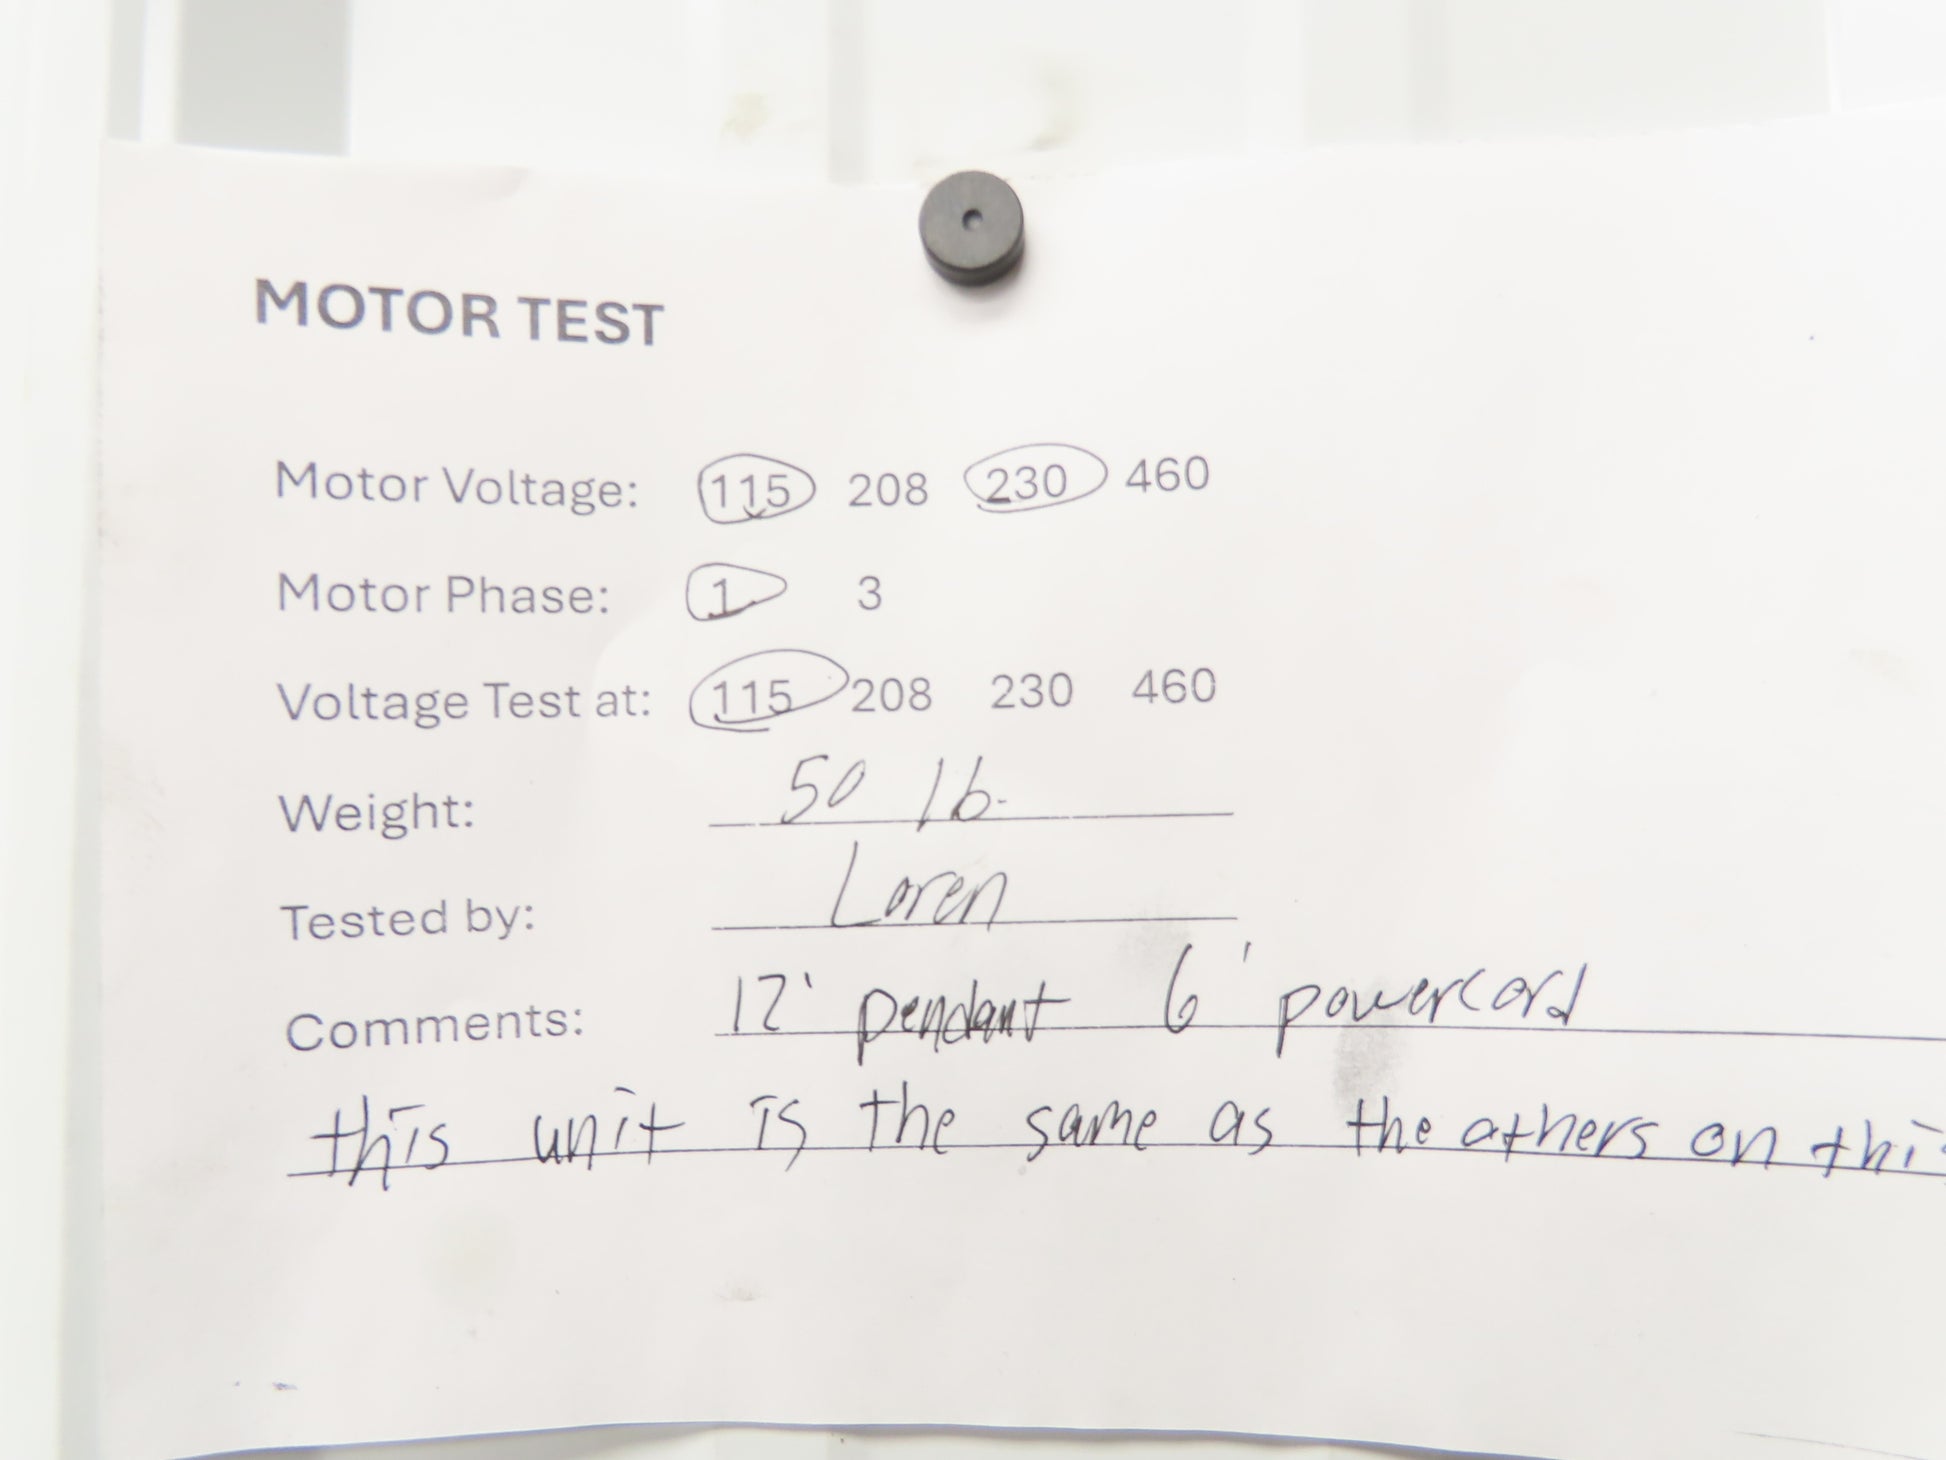 MOTOR TEST
Motor Voltage: 115 208 230 460
Motor Phase: 1 3
Voltage Test at: 115 208 230 460
Weight: 50 lb.
Tested by: Loren
Comments: 12' pendant 6' powercord
this unit is the same as the others on this